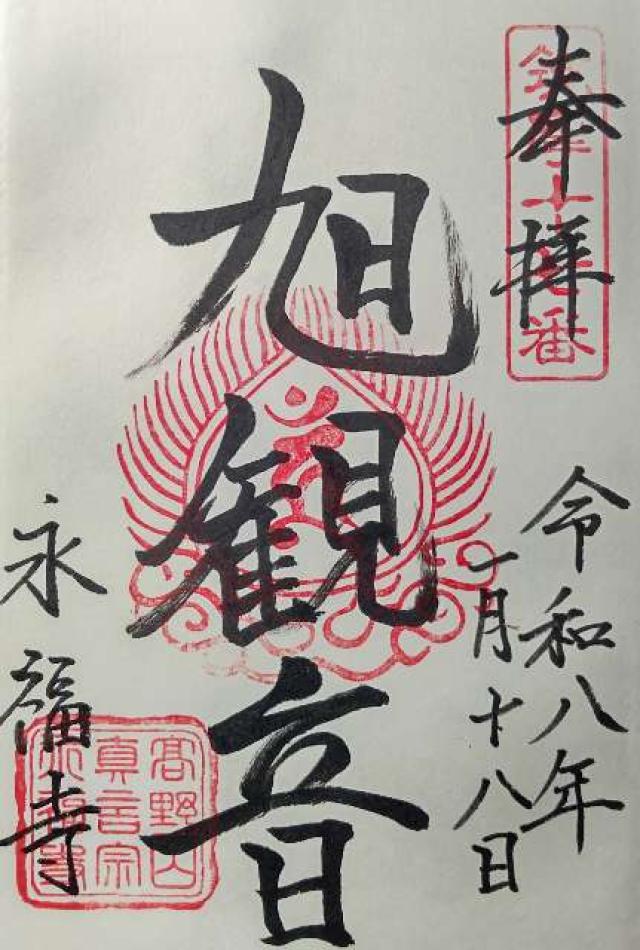 奉拝
令和八年
一月十八日
旭観音
永福寺
高野山
真言宗
永福寺